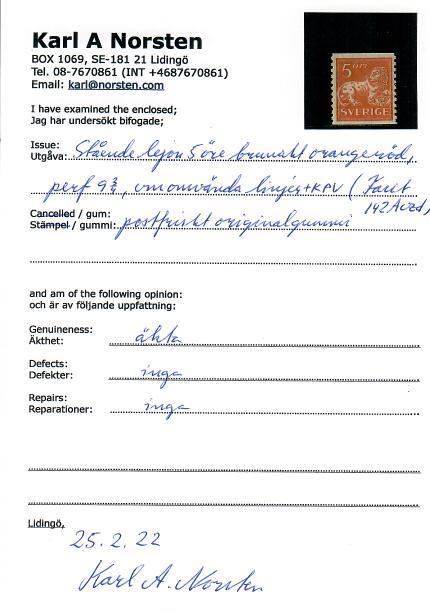 Karl A Norsten
BOX 1069, SE-181 21 Lidingö
Tel. 08-7670861 (INT +4687670861)
Email: karl@norsten.com
5 ÖRE
SVERIGE
I have examined the enclosed;
Jag har undersökt bifogade;
Issue:
Utgåva: Stående lejon 5 öre brunakt orangeröd,
perf 9 3/4, vm omvända linjer+KPV (Facit
142Acvzd,
Cancelled / gum:
Stämpel / gummi: postfriskt originalgummi
and am of the following opinion:
och är av följande uppfattning:
Genuineness:
Äkthet: äkta
Defects:
Defekter: inga
Repairs:
Reparationer: inga
Lidingö,
25. 2. 22
Karl A. Norsten